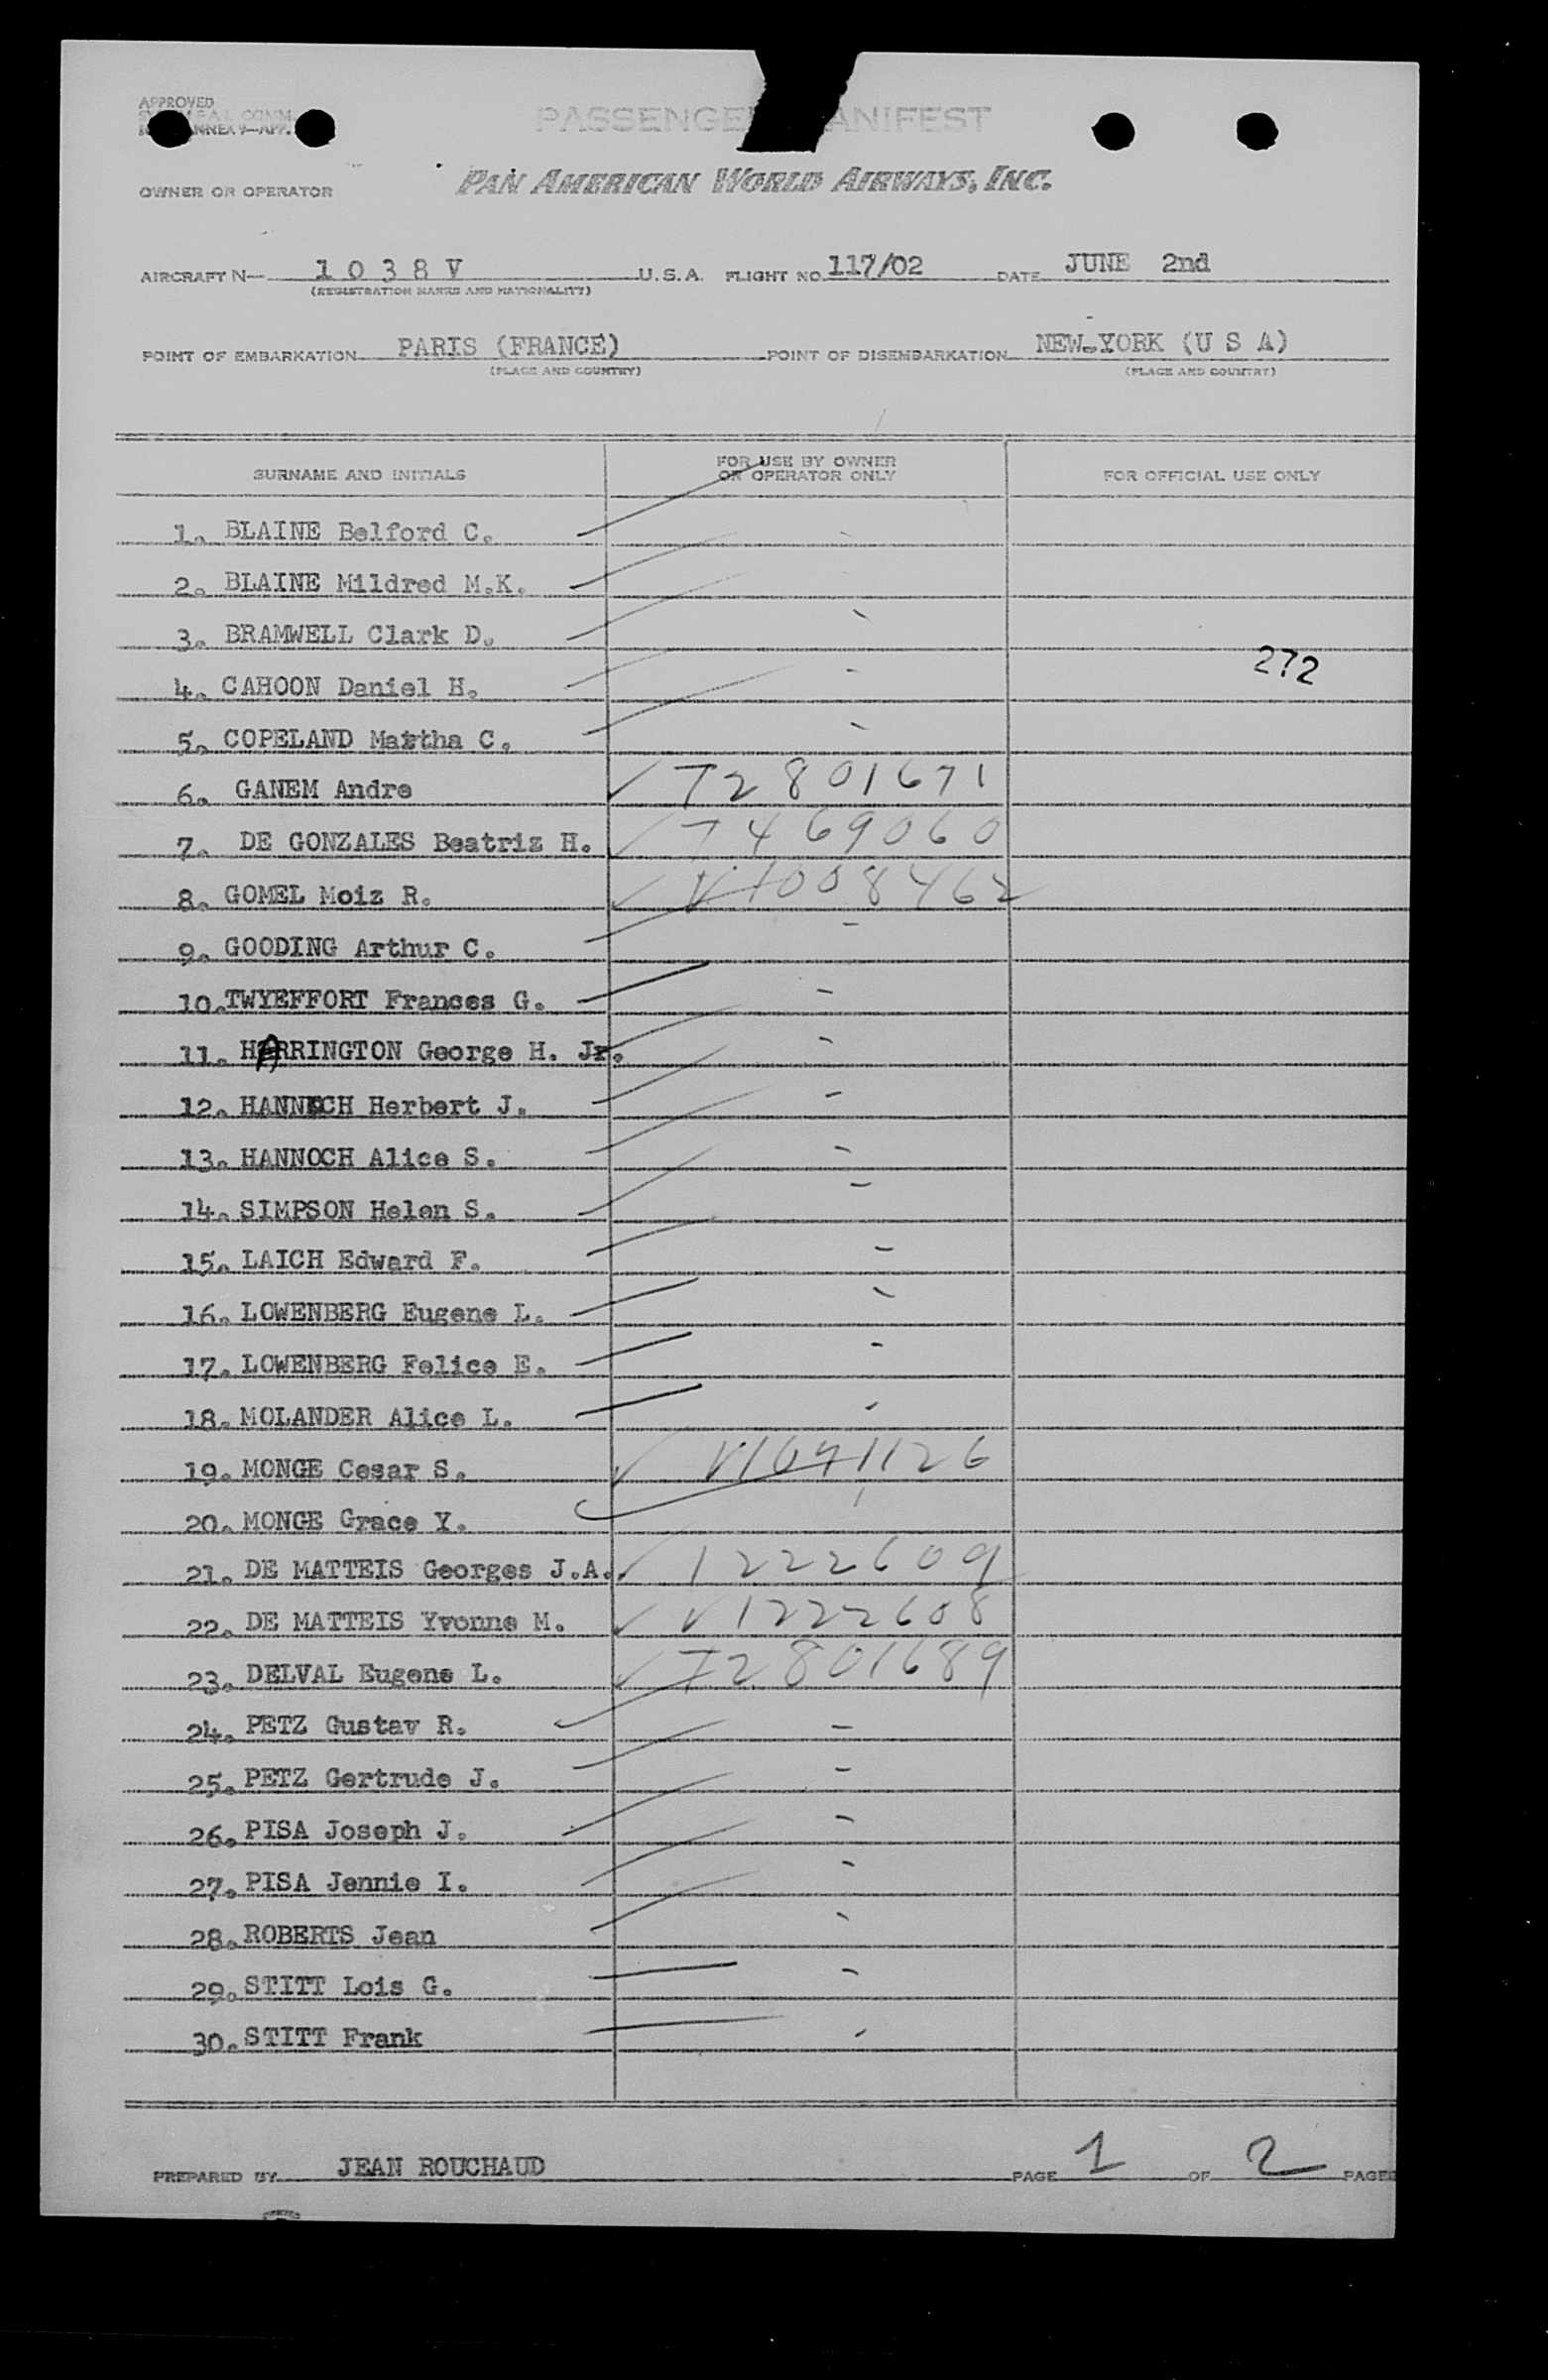 APPROVED
PASSENGER MANIFEST
OWNER OR OPERATOR PAN AMERICAN WORLD AIRWAYS, INC.
AIRCRAFT N— 1 0 3 8 V U.S.A. FLIGHT NO. 117/02 DATE JUNE 2nd
(REGISTRATION MARKS AND NATIONALITY)
POINT OF EMBARKATION PARIS (FRANCE) POINT OF DISEMBARKATION NEW-YORK (U S A)
(PLACE AND COUNTRY) (PLACE AND COUNTRY)
SURNAME AND INITIALS FOR USE BY OWNER OR OPERATOR ONLY FOR OFFICIAL USE ONLY
1. BLAINE Belford C.
2. BLAINE Mildred M.K.
3. BRAMWELL Clark D.
272
4. CAHOON Daniel H.
5. COPELAND Martha C.
6. GANEM Andre ✓ T2801671
7. DE GONZALES Beatriz H. ✓ T469060
8. GOMEL Moiz R. ✓ V1008462
9. GOODING Arthur C.
10. TWYEFFORT Frances G.
11. HARRINGTON George H. Jr.
12. HANNOCH Herbert J.
13. HANNOCH Alice S.
14. SIMPSON Helen S.
15. LAICH Edward F.
16. LOWENBERG Eugene L.
17. LOWENBERG Felice E.
18. MOLANDER Alice L.
19. MONGE Cesar S. ✓ V1071126
20. MONGE Grace Y.
21. DE MATTEIS Georges J.A. ✓ 1222609
22. DE MATTEIS Yvonne M. ✓ V1222608
23. DELVAL Eugene L. ✓ T2801689
24. PETZ Gustav R.
25. PETZ Gertrude J.
26. PISA Joseph J.
27. PISA Jennie I.
28. ROBERTS Jean
29. STITT Lois G.
30. STITT Frank
PREPARED BY JEAN ROUCHAUD PAGE 1 OF 2 PAGES